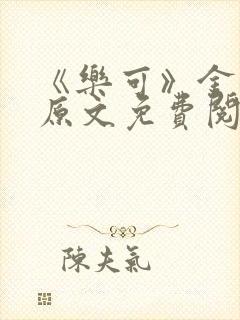 《樂可》金
原文免費閱
陳夫氣